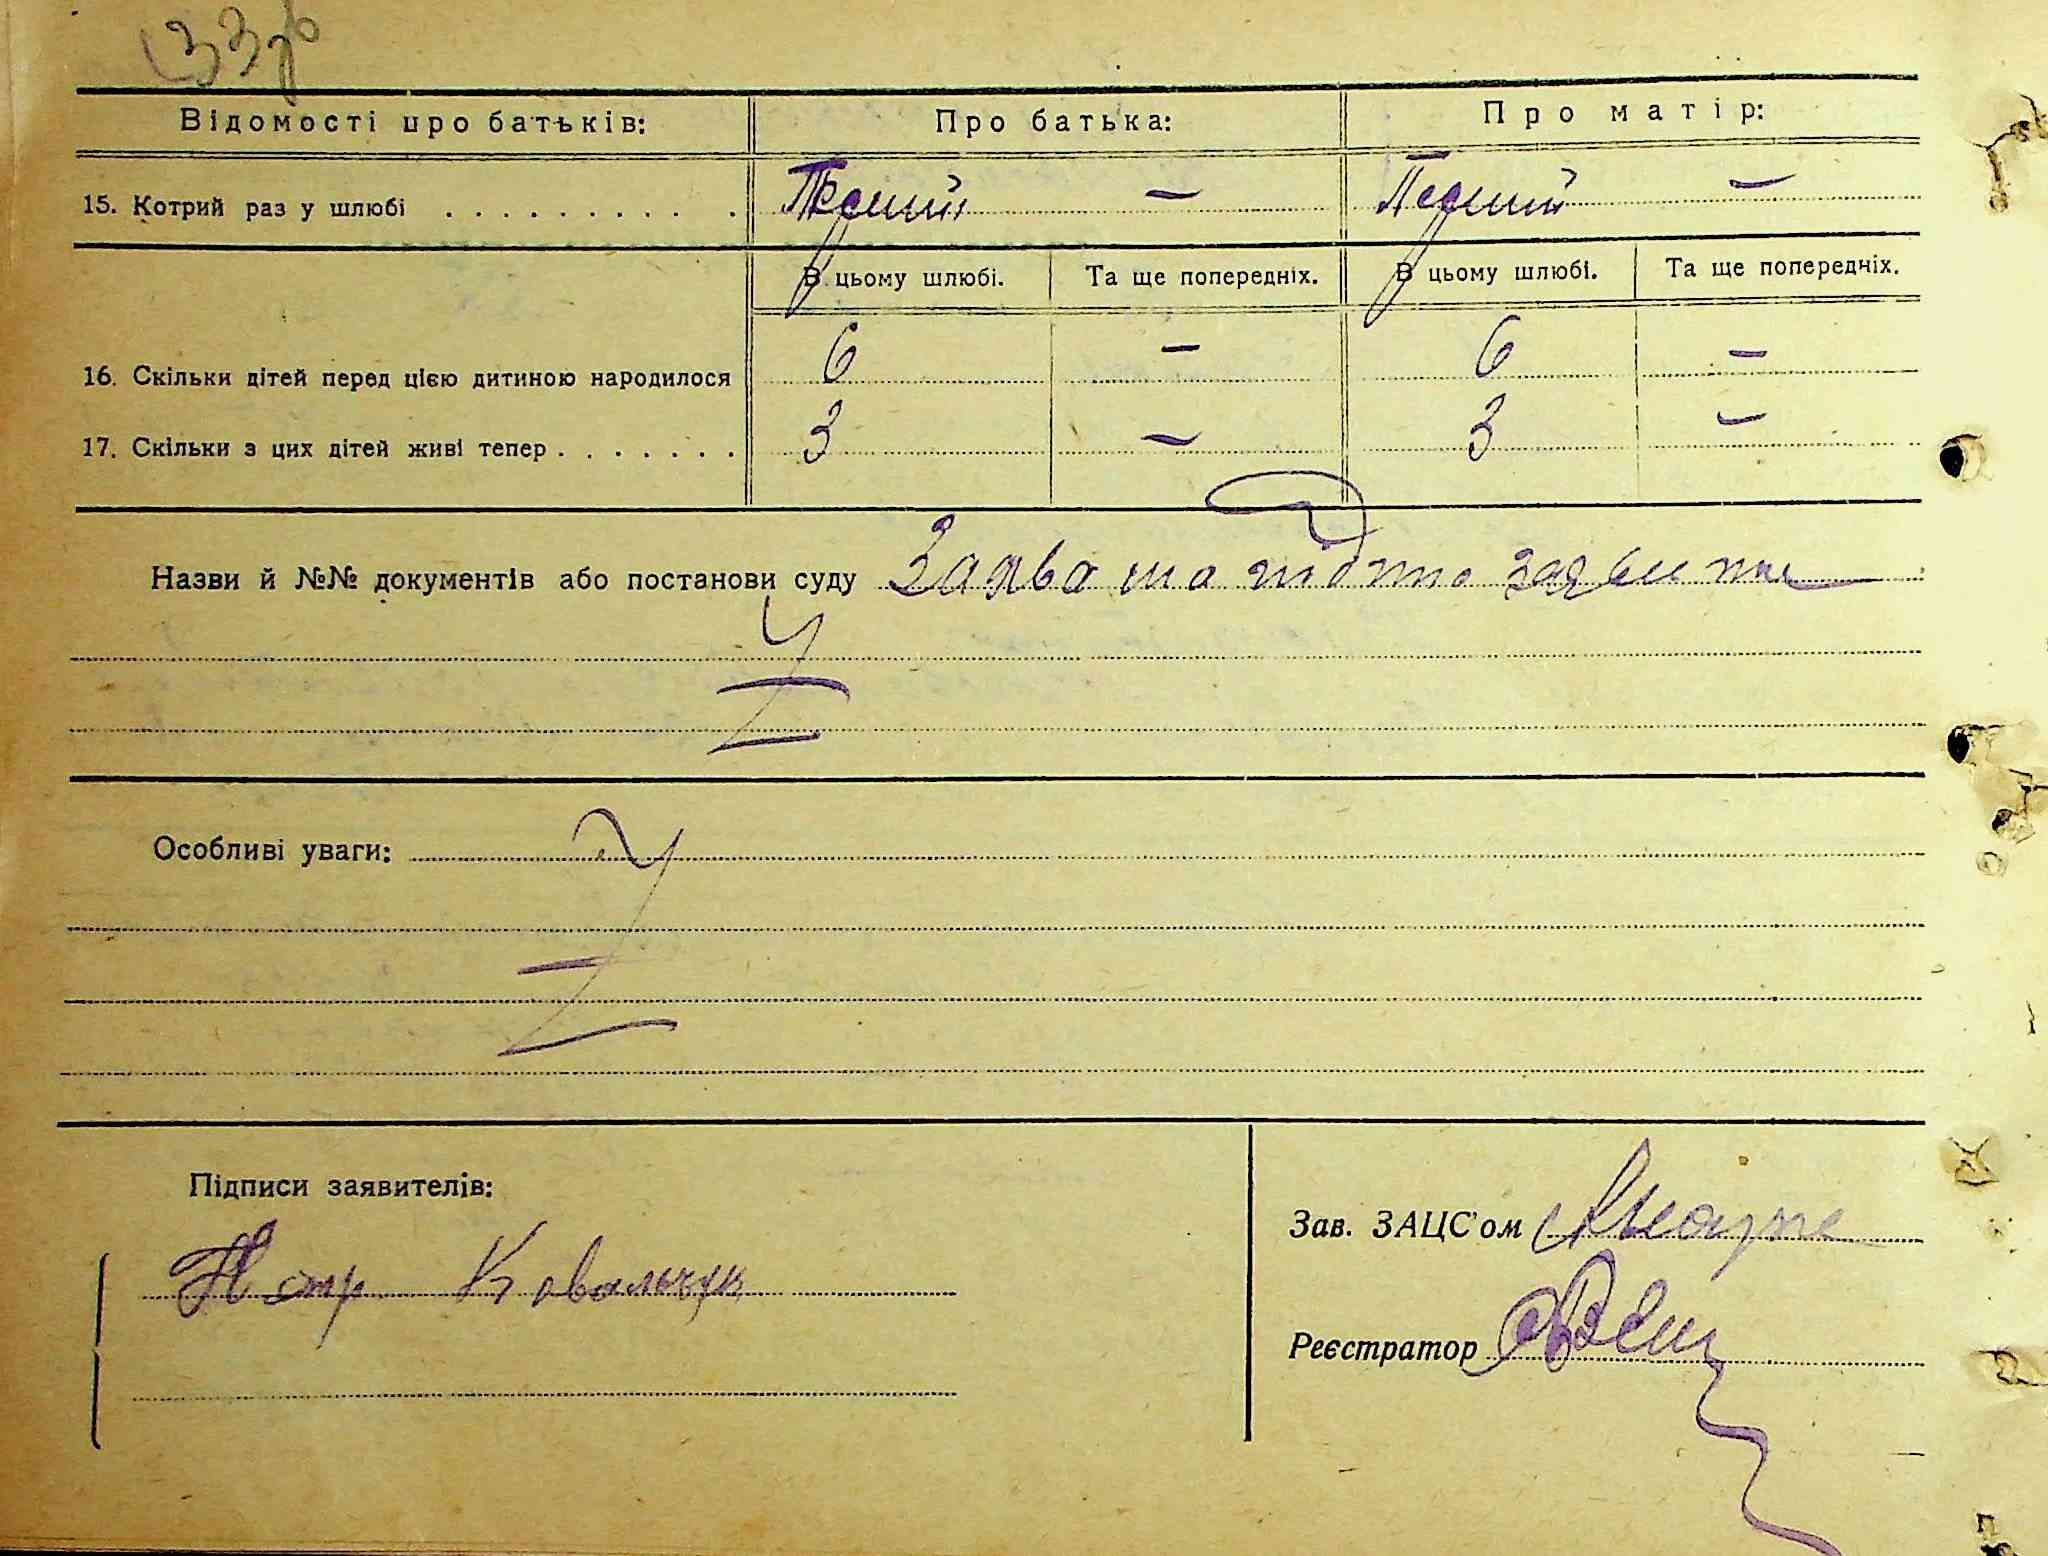 Відомості про батьків: Про батька: Про матір:
15. Котрий раз у шлюбі . . . . . . . . . . Перший — Перший —
В цьому шлюбі. Та ще попередніх. В цьому шлюбі. Та ще попередніх.
16. Скільки дітей перед цією дитиною народилося 6 — 6 —
17. Скільки з цих дітей живі тепер . . . . . . . 3 — 3 —
Назви й №№ документів або постанови суду Заява та
Особливі уваги:
Підписи заявителів:
Зав. ЗАЦС'ом
Ковальчук
Реєстратор